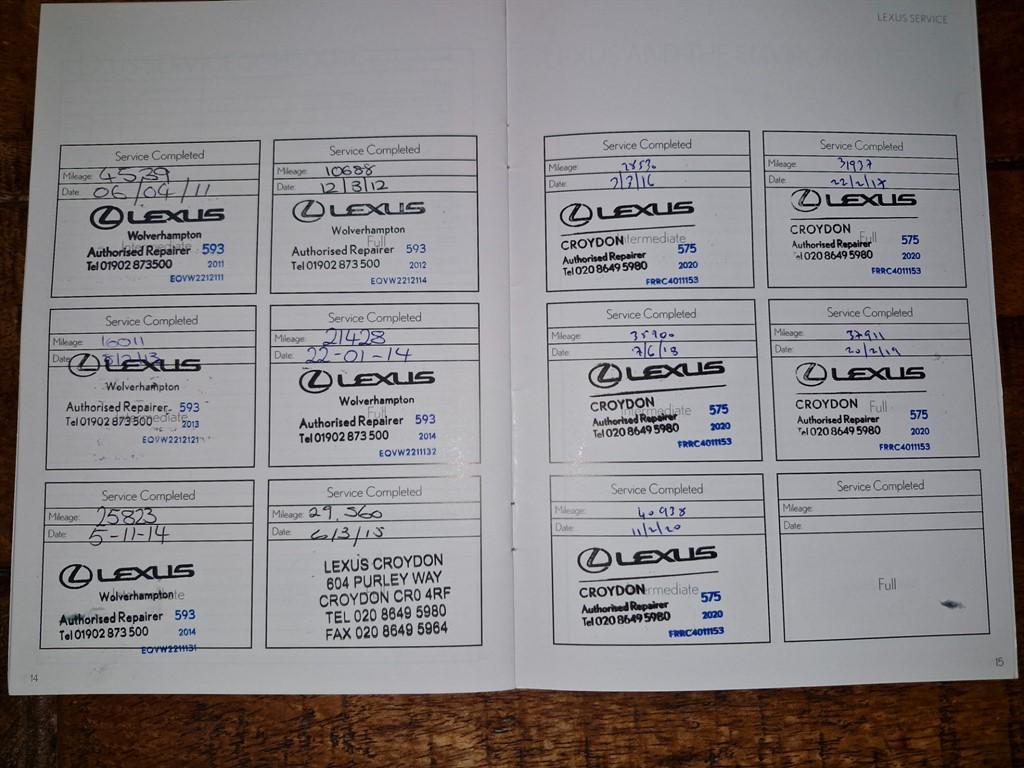 LEXUS SERVICE
Service Completed
Mileage: 4539
Date: 06/04/11
LEXUS
Wolverhampton
Intermediate
Authorised Repairer 593
Tel 01902 873500 2011
EQVW2212111
Service Completed
Mileage: 10688
Date: 12/3/12
LEXUS
Wolverhampton
Full
Authorised Repairer 593
Tel 01902 873 500 2012
EQVW2212114
Service Completed
Mileage: 16011
Date:
LEXUS
Wolverhampton
Authorised Repairer 593
Intermediate
Tel 01902 873 500 2013
EQVW2212121
Service Completed
Mileage: 21428
Date: 22-01-14
LEXUS
Wolverhampton
Full
Authorised Repairer 593
Tel 01902 873 500 2014
EQVW2211132
Service Completed
Mileage: 25823
Date: 5-11-14
LEXUS
Wolverhampton
Authorised Repairer 593
Tel 01902 873 500 2014
EQVW2211131
Service Completed
Mileage: 29,560
Date: 6/3/15
LEXUS CROYDON
604 PURLEY WAY
CROYDON CR0 4RF
TEL 020 8649 5980
FAX 020 8649 5964
14
Service Completed
Mileage:
Date:
LEXUS
CROYDON Intermediate
Authorised Repairer 575
Tel 020 8649 5980 2020
FRRC4011153
Service Completed
Mileage: 31937
Date: 22/2/17
LEXUS
CROYDON Full
Authorised Repairer 575
Tel 020 8649 5980 2020
FRRC4011153
Service Completed
Mileage: 35900
Date: 7/6/18
LEXUS
CROYDON Intermediate
Authorised Repairer 575
Tel 020 8649 5980 2020
FRRC4011153
Service Completed
Mileage: 37911
Date:
LEXUS
CROYDON Full
Authorised Repairer 575
Tel 020 8649 5980 2020
FRRC4011153
Service Completed
Mileage: 40938
Date: 11/2/20
LEXUS
CROYDON Intermediate
Authorised Repairer 575
Tel 020 8649 5980 2020
FRRC4011153
Service Completed
Mileage:
Date:
Full
15